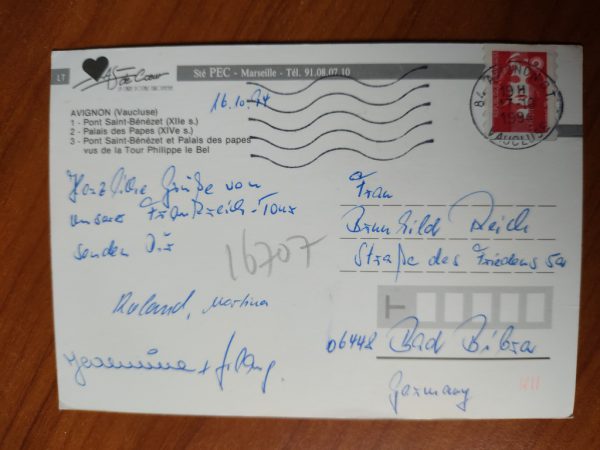 LT
AS de Cœur
Sté PEC - Marseille - Tél. 91.08.07.10
AVIGNON (Vaucluse)
1 - Pont Saint-Bénézet (XIIe s.)
2 - Palais des Papes (XIVe s.)
3 - Pont Saint-Bénézet et Palais des papes
vus de la Tour Philippe le Bel
16.10.94
84 AVIGNON
19H
1994
VAUCLUSE
Herzliche Grüße von
unserer Frankreich-Tour
senden Dir
Roland, Martina
16707
Frau
Brunhild Reich
Straße des Friedens 5a
06448 Bad Bibra
Germany